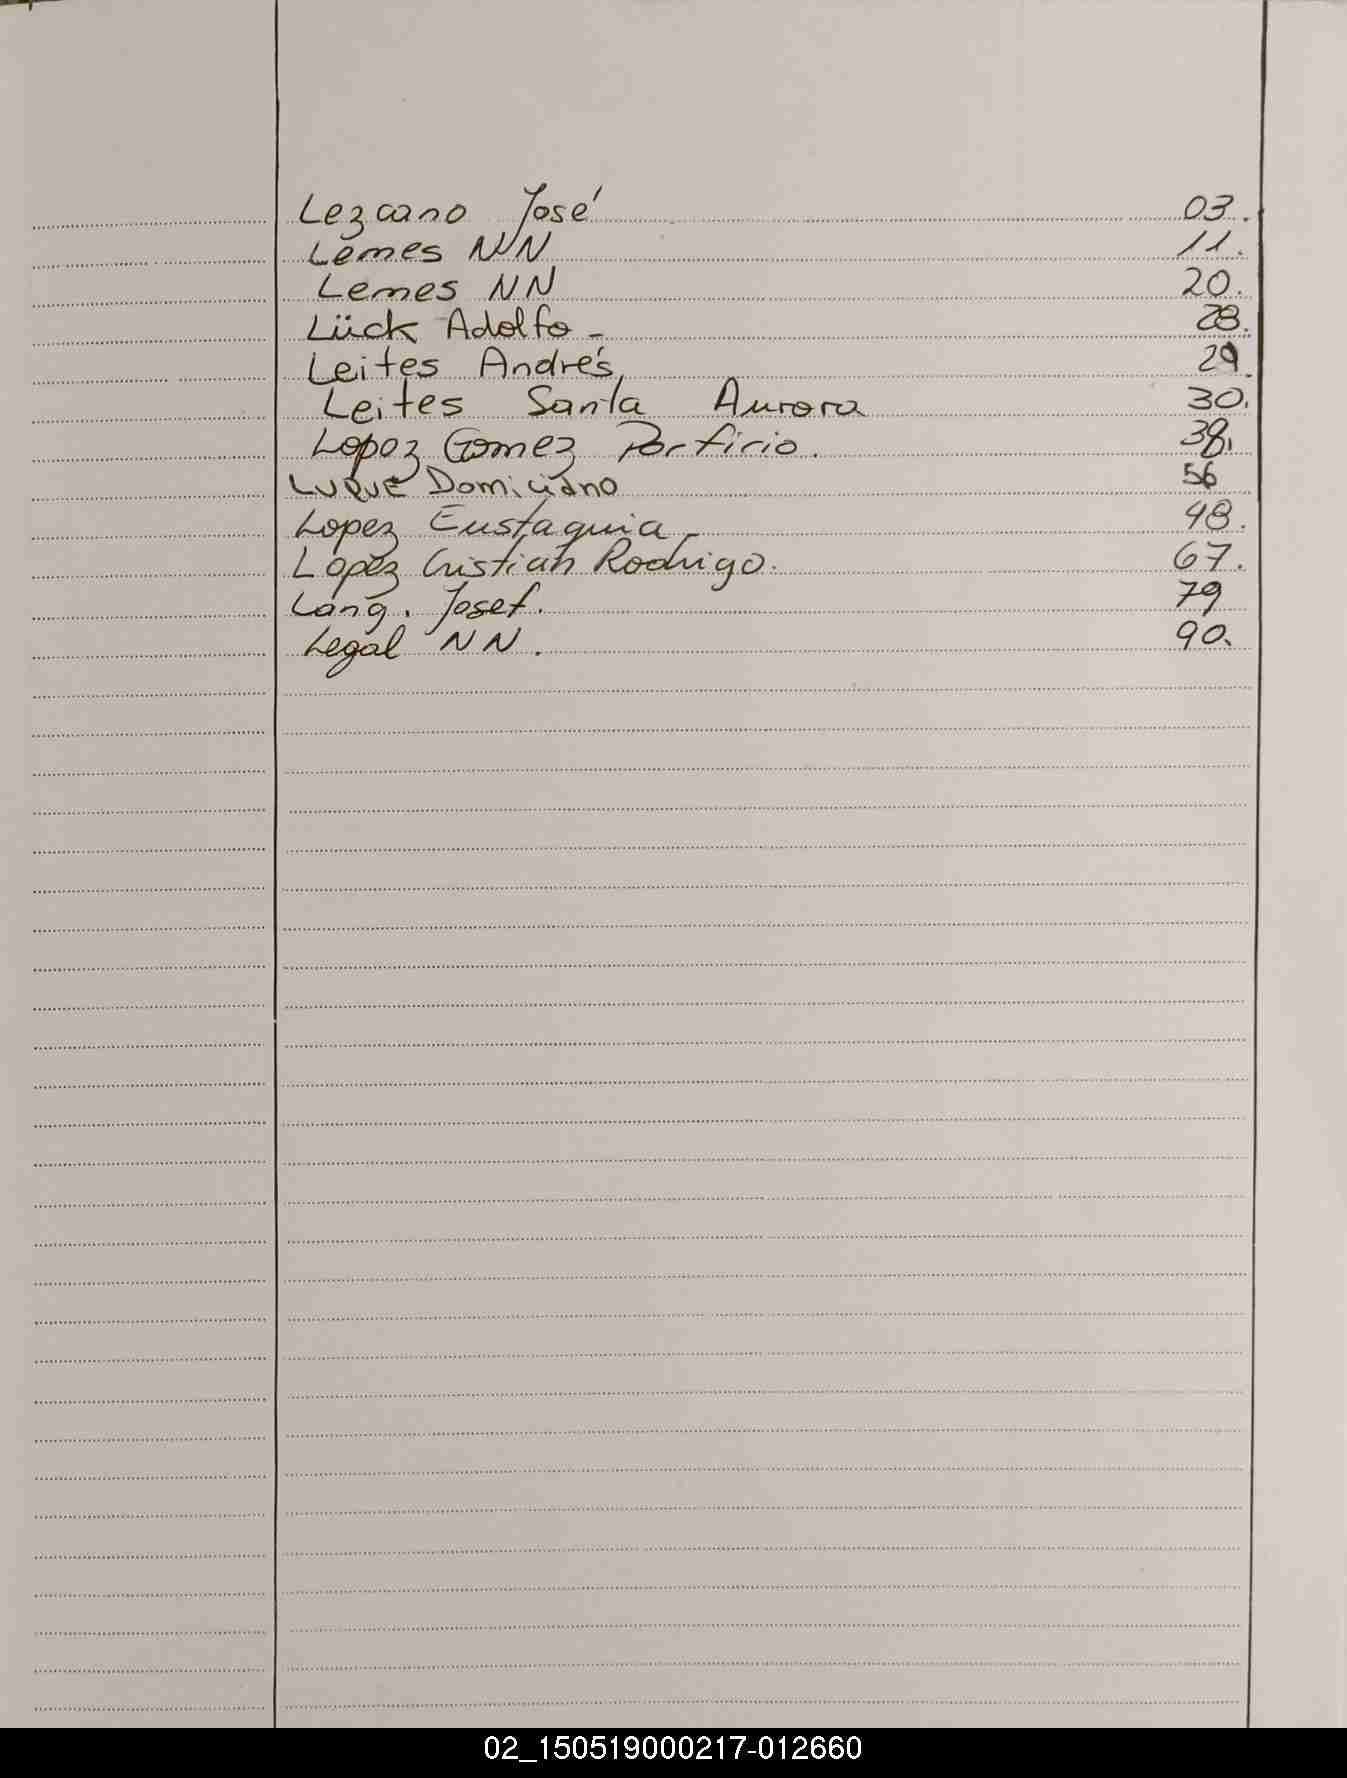 Lezcano José 03.
Lemes NN 11.
Lemes NN 20.
Lück Adolfo - 28.
Leites Andrés 29.
Leites Santa Aurora 30.
Lopez Gomez Porfirio. 38.
LUQUE Domiciano 56
Lopez Eustaquia 48.
Lopez Cristian Rodrigo. 67.
Lang. Josef. 79
Legal NN. 90.
02_150519000217-012660